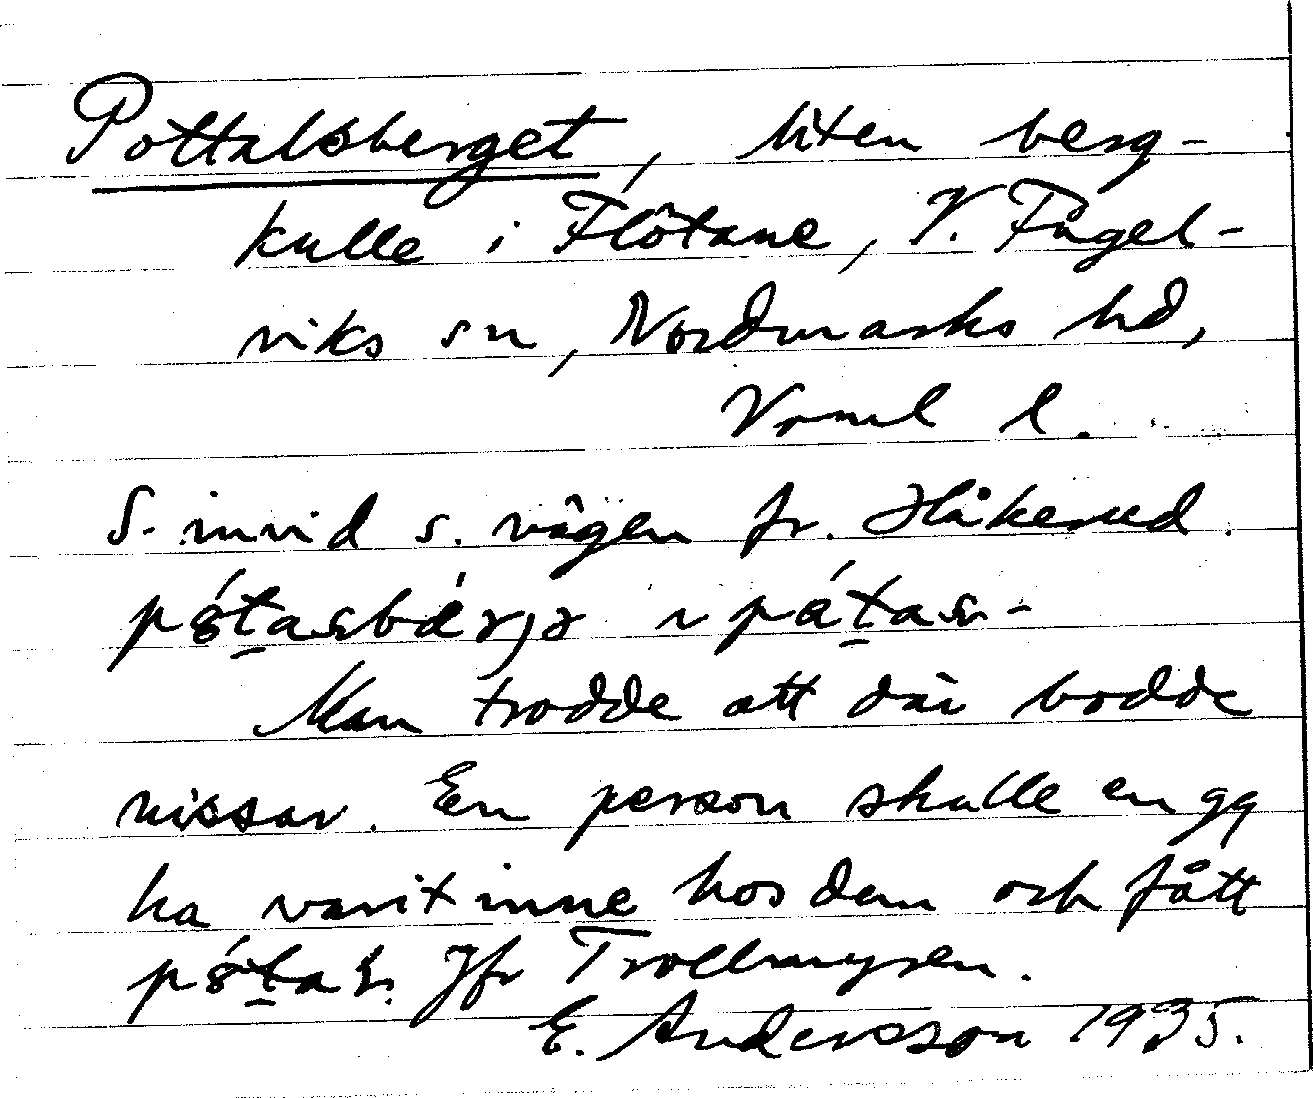 Pottalsberget, liten berg-
kulle i Flötane, V. Fågel-
viks sn, Nordmarks hd,
Vrml l.
S. invid s. vägen fr. Håkerud.
Man trodde att där bodde
nissar. En person skulle en gg
ha varit inne hos dem och fått
Jfr Trollmyren.
E. Andersson 1935.